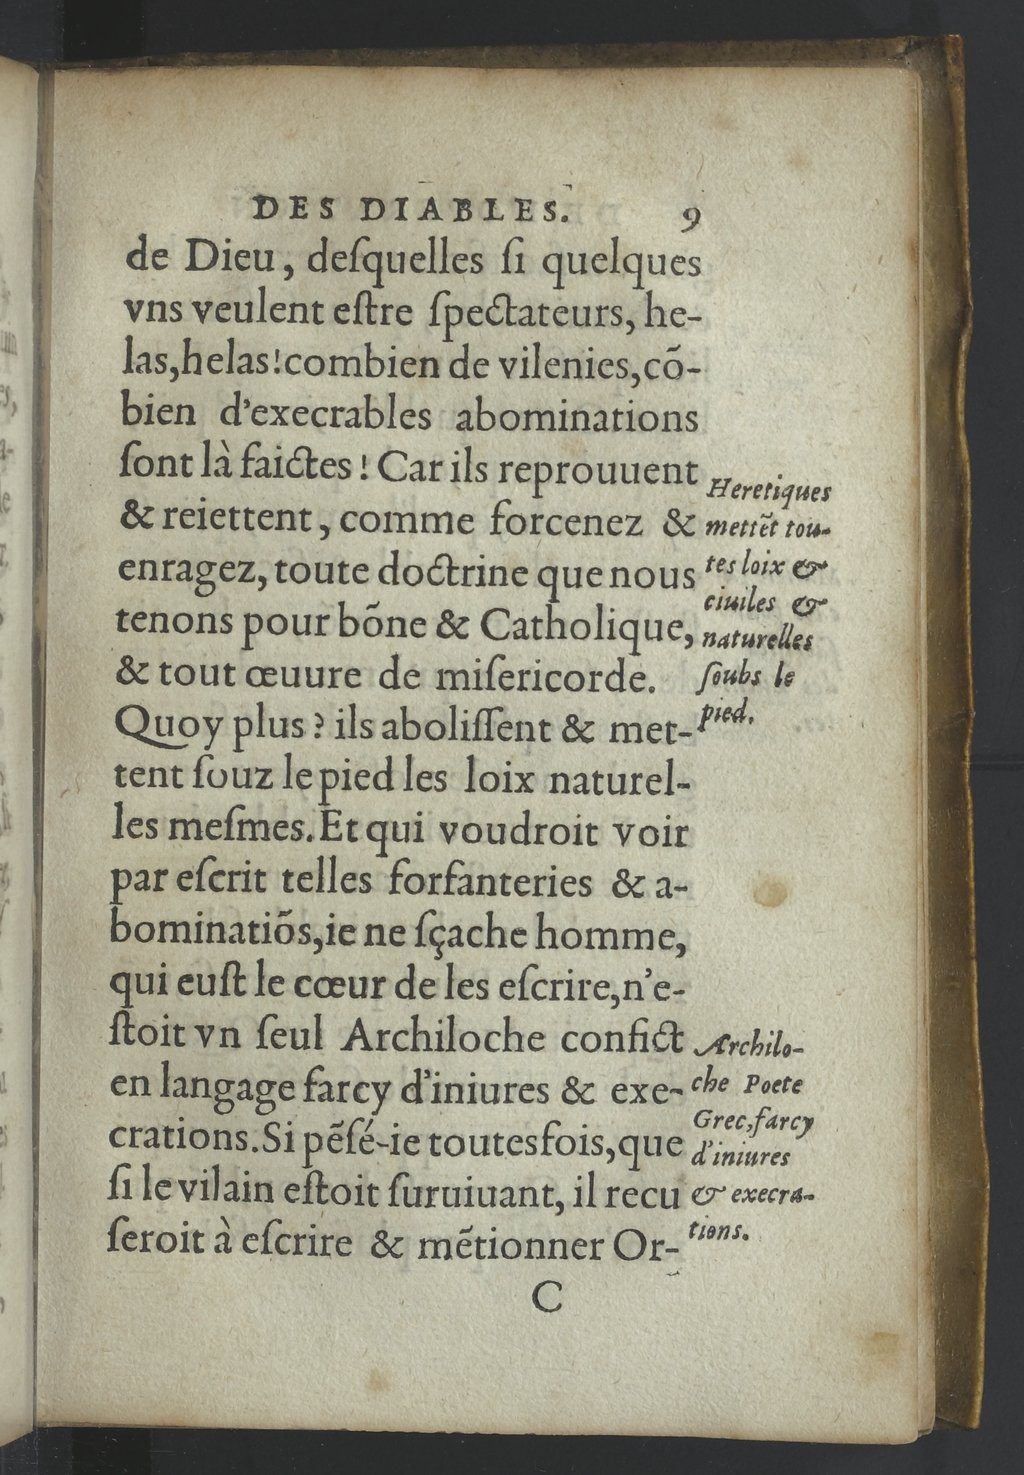 DES DIABLES. 9
de Dieu, deſquelles ſi quelques
vns veulent eſtre ſpectateurs, he-
las,helas!combien de vilenies,cõ-
bien d'execrables abominations
ſont là faictes ! Car ils reprouuent
& reiettent, comme forcenez &
enragez, toute doctrine que nous
tenons pour bõne & Catholique,
& tout œuure de miſericorde.
Quoy plus ? ils aboliſſent & met-
tent ſouz le pied les loix naturel-
les meſmes. Et qui voudroit voir
par eſcrit telles forfanteries & a-
bominatiõs,ie ne ſçache homme,
qui euſt le cœur de les eſcrire,n'e-
ſtoit vn ſeul Archiloche confict
en langage farcy d'iniures & exe-
crations. Si pẽſé-ie toutesfois, que
ſi le vilain eſtoit ſuruiuant, il recu
ſeroit à eſcrire & mẽtionner Or-
C
Heretiques
mettẽt tou-
tes loix &
ciuiles &
naturelles
ſoubs le
pied.
Archilo-
che Poete
Grec,farcy
d'iniures
& execra-
tions.